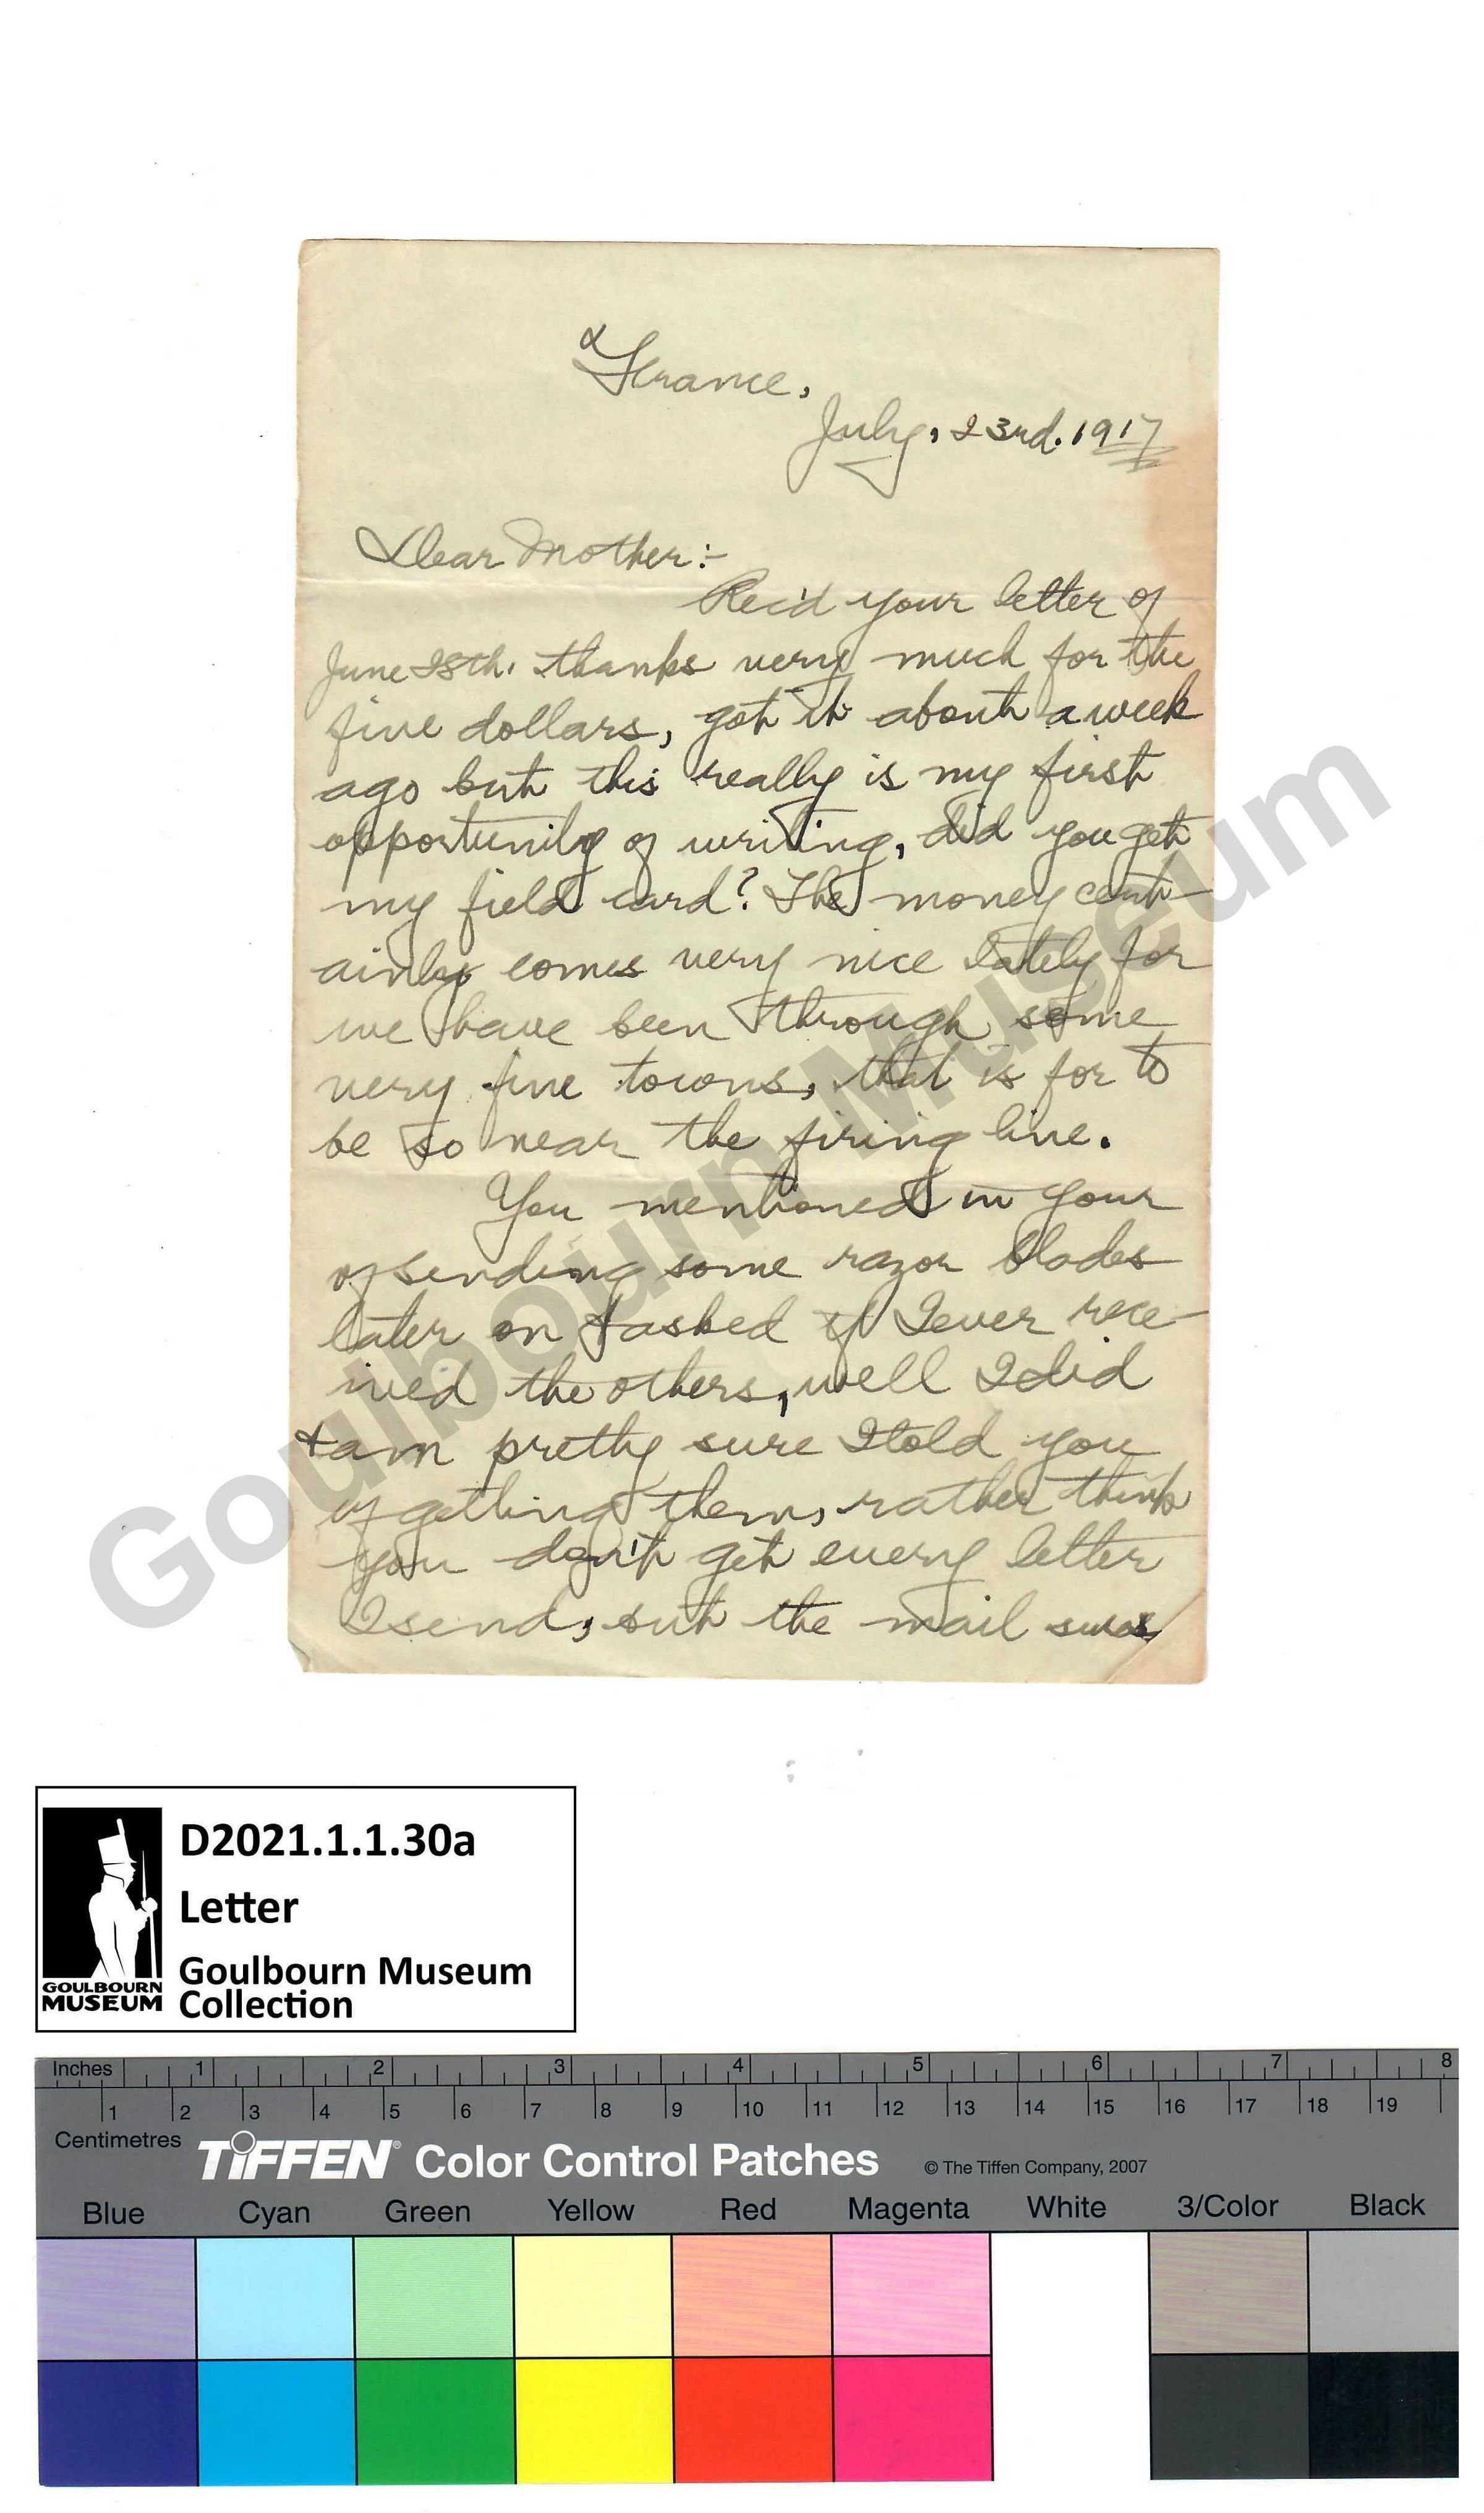 France,
July, 23rd. 1917
Dear Mother:-
Rec'd your letter of
June 28th. thanks very much for the
five dollars, got it about a week
ago but this really is my first
opportunity of writing, did you get
my field card? The money cert-
ainly comes very nice lately for
we have been through some
very fine towns, that is for to
be so near the firing line.
You mentioned in your
of sending some razor blades
later on & asked if I ever rece-
ived the others, well I did
& am pretty sure I told you
of getting them, rather think
you don't get every letter
I send, but the mail
Goulbourn Museum
D2021.1.1.30a
Letter
Goulbourn Museum
Collection
GOULBOURN
MUSEUM
Inches 1 2 3 4 5 6 7 8
1 2 3 4 5 6 7 8 9 10 11 12 13 14 15 16 17 18 19
Centimetres
TIFFEN® Color Control Patches © The Tiffen Company, 2007
Blue Cyan Green Yellow Red Magenta White 3/Color Black